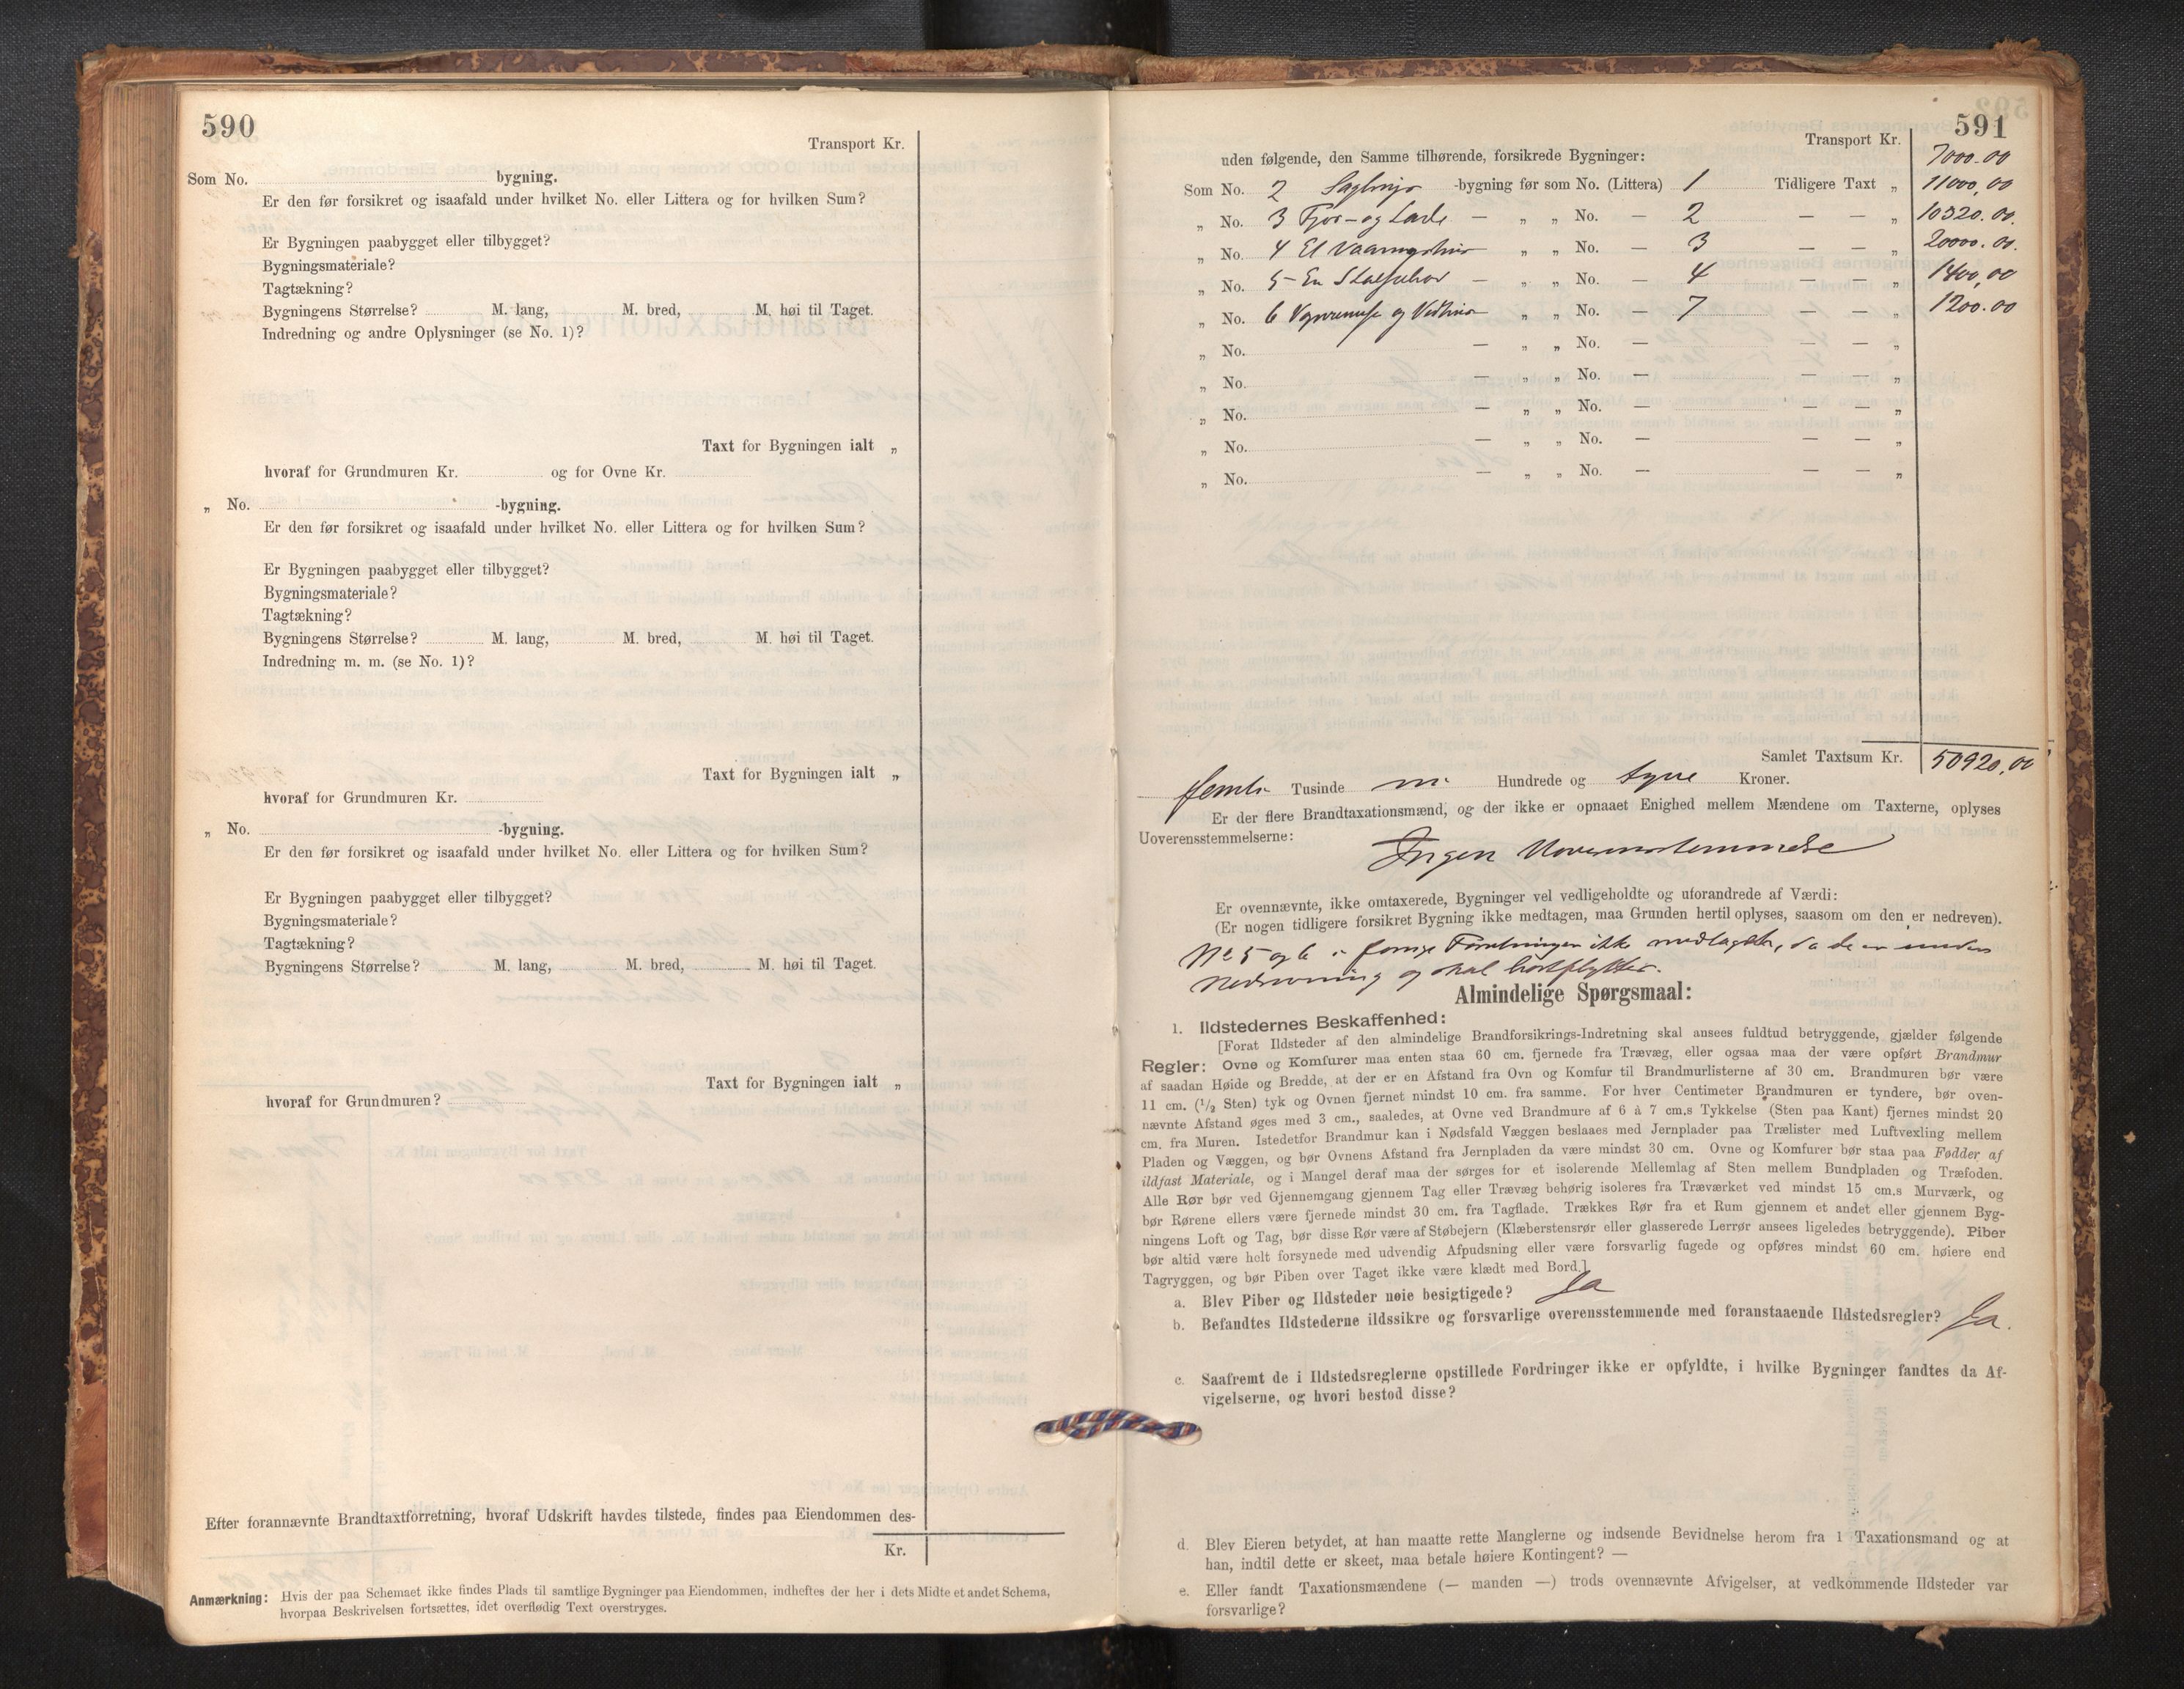 590
Transport Kr.
Som No. bygning.
Er den før forsikret og isaafald under hvilket No. eller Littera og for hvilken Sum?
Er Bygningen paabygget eller tilbygget?
Bygningsmateriale?
Tagtækning?
Bygningens Størrelse? M. lang, M. bred, M. høi til Taget.
Indredning og andre Oplysninger (se No. 1)?
Taxt for Bygningen ialt „
hvoraf for Grundmuren Kr. og for Ovne Kr.
„ No. -bygning.
Er den før forsikret og isaafald under hvilket No. eller Littera og for hvilken Sum?
Er Bygningen paabygget eller tilbygget?
Bygningsmateriale?
Tagtækning?
Bygningens Størrelse? M. lang, M. bred, M. høi til Taget.
Indredning m. m. (se No. 1)?
Taxt for Bygningen ialt „
hvoraf for Grundmuren Kr.
„ No. -bygning.
Er den før forsikret og isaafald under hvilket No. eller Littera og for hvilken Sum?
Er Bygningen paabygget eller tilbygget?
Bygningsmateriale?
Tagtækning?
Bygningens Størrelse? M. lang, M. bred, M. høi til Taget.
Taxt for Bygningen ialt „
hvoraf for Grundmuren?
Efter forannævnte Brandtaxtforretning, hvoraf Udskrift havdes tilstede, findes paa Eiendommen des-
Kr.
Anmærkning: Hvis der paa Schemaet ikke findes Plads til samtlige Bygninger paa Eiendommen, indheftes der her i dets Midte et andet Schema,
hvorpaa Beskrivelsen fortsættes, idet overflødig Text overstryges.
591
Transport Kr. 7000.00
uden følgende, den Samme tilhørende, forsikrede Bygninger:
Som No. 2 -bygning før som No. (Littera) 1 Tidligere Taxt „ 11000,00
„ No. 3 Fjøs- og Lade — „ „ No. — 2 — — „ 10320.00.
„ No. 4 Et Vaaningshus „ „ No. — 3 — — „ 20000.00.
„ No. 5 - En — „ „ No. — 4 — — „ 1400,00
„ No. 6 og Vedhus „ „ No. — 7 — — „ 1200.00
„ No. — „ „ No. — — — „
„ No. — „ „ No. — — — „
„ No. — „ „ No. — — — „
„ No. — „ „ No. — — — „
„ No. — „ „ No. — — — „
Samlet Taxtsum Kr. 50920,00
femti Tusinde ni Hundrede og tyve Kroner.
Er der flere Brandtaxationsmænd, og der ikke er opnaaet Enighed mellem Mændene om Taxterne, oplyses
Uoverensstemmelserne:
Ingen Uoverensstemmelse
Er ovennævnte, ikke omtaxerede, Bygninger vel vedligeholdte og uforandrede af Værdi:
(Er nogen tidligere forsikret Bygning ikke medtagen, maa Grunden hertil oplyses, saasom om den er nedreven).
No 5 og 6 i forrige Forretningen ikke medtaget, da de er under
Nedrivning og skal bortflyttes.
Almindelige Spørgsmaal:
1. Ildstedernes Beskaffenhed:
[Forat Ildsteder af den almindelige Brandforsikrings-Indretning skal ansees fuldtud betryggende, gjælder følgende
Regler: Ovne og Komfurer maa enten staa 60 cm. fjernede fra Trævæg, eller ogsaa maa der være opført Brandmur
af saadan Høide og Bredde, at der er en Afstand fra Ovn og Komfur til Brandmurlisterne af 30 cm. Brandmuren bør være
11 cm. (1/2 Sten) tyk og Ovnen fjernet mindst 10 cm. fra samme. For hver Centimeter Brandmuren er tyndere, bør oven-
nævnte Afstand øges med 3 cm., saaledes, at Ovne ved Brandmure af 6 à 7 cm.s Tykkelse (Sten paa Kant) fjernes mindst 20
cm. fra Muren. Istedetfor Brandmur kan i Nødsfald Væggen beslaaes med Jernplader paa Trælister med Luftvexling mellem
Pladen og Væggen, og bør Ovnens Afstand fra Jernpladen da være mindst 30 cm. Ovne og Komfurer bør staa paa Fødder af
ildfast Materiale, og i Mangel deraf maa der sørges for et isolerende Mellemlag af Sten mellem Bundpladen og Træfoden.
Alle Rør bør ved Gjennemgang gjennem Tag eller Trævæg behørig isoleres fra Træværket ved mindst 15 cm.s Murværk, og
bør Rørene ellers være fjernede mindst 30 cm. fra Tagflade. Trækkes Rør fra et Rum gjennem et andet eller gjennem Byg-
ningens Loft og Tag, bør disse Rør være af Støbejern (Klæberstensrør eller glasserede Lerrør ansees ligeledes betryggende). Piber
bør altid være helt forsynede med udvendig Afpudsning eller være forsvarlig fugede og opføres mindst 60 cm. høiere end
Tagryggen, og bør Piben over Taget ikke være klædt med Bord.]
a. Blev Piber og Ildsteder nøie besigtigede? Ja
b. Befandtes Ildstederne ildssikre og forsvarlige overensstemmende med foranstaaende Ildstedsregler? Ja.
c. Saafremt de i Ildstedsreglerne opstillede Fordringer ikke er opfyldte, i hvilke Bygninger fandtes da Af-
vigelserne, og hvori bestod disse?
d. Blev Eieren betydet, at han maatte rette Manglerne og indsende Bevidnelse herom fra 1 Taxationsmand og at
han, indtil dette er skeet, maa betale høiere Kontingent? —
e. Eller fandt Taxationsmændene (— manden —) trods ovennævnte Afvigelser, at vedkommende Ildsteder var
forsvarlige?